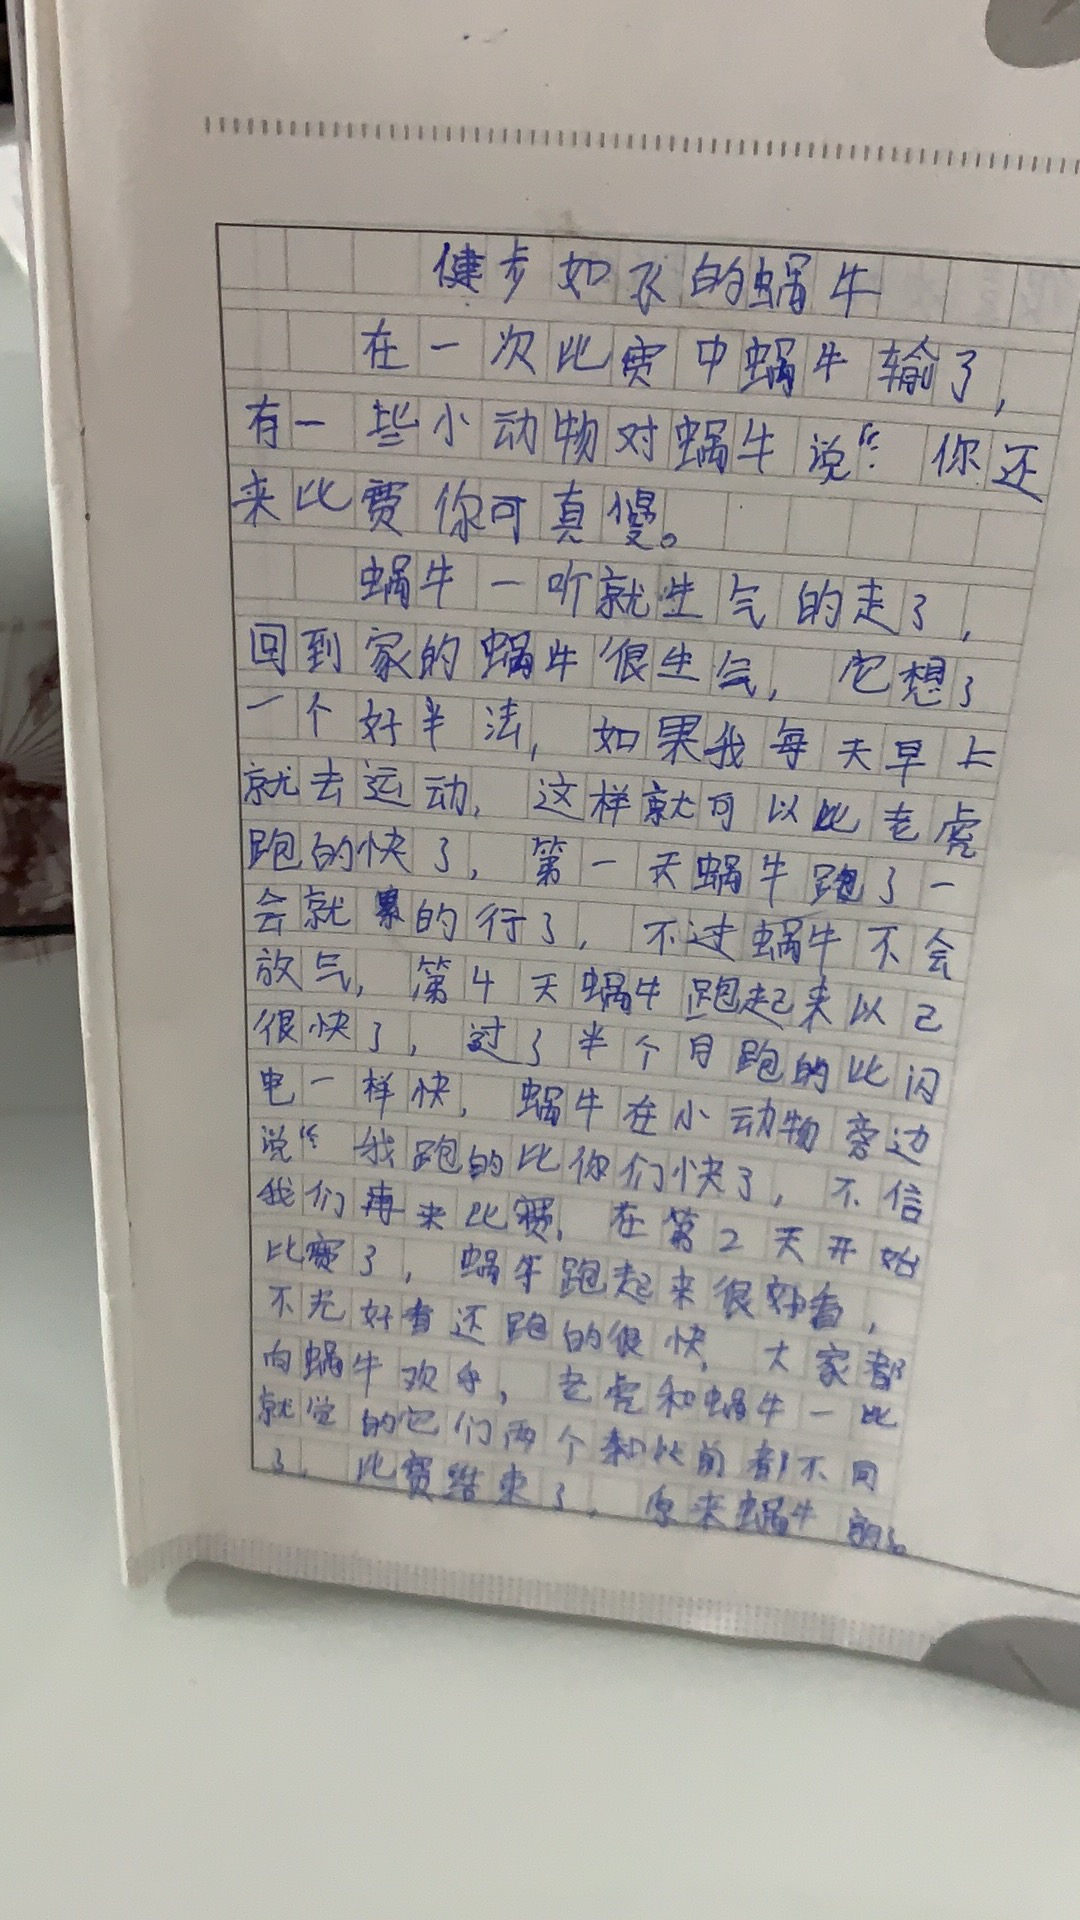 健步如飞的蜗牛
在一次比赛中蜗牛输了，
有一些小动物对蜗牛说“：你还
来比赛你可真傻。
蜗牛一听就生气的走了，
回到家的蜗牛很生气，它想了
一个好半法，如果我每天早上
就去运动，这样就可以比老虎
跑的快了，第一天蜗牛跑了一
会就累的行了，不过蜗牛不会
放气，第4天蜗牛跑起来以己
很快了，过了半个月跑的比闪
电一样快，蜗牛在小动物旁边
说“：我跑的比你们快了，不信
我们再来比赛，在第2天开始
比赛了，蜗牛跑起来很好看，
不光好看还跑的很快，大家都
向蜗牛欢乎，老虎和蜗牛一比
就觉的它们两个和比前都不同
了，比赛结束了，原来蜗牛的。